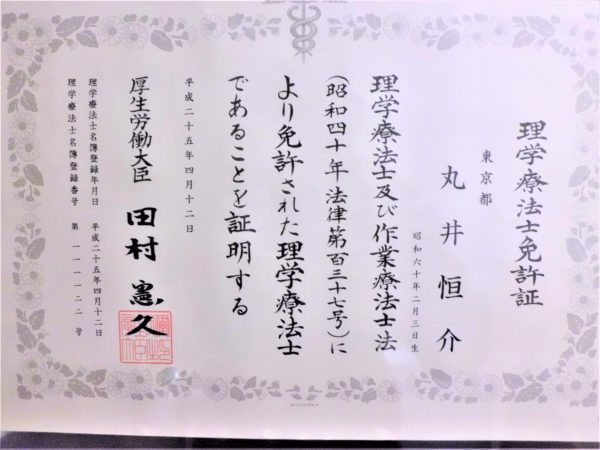 理学療法士免許証
東京都
丸井恒介
昭和六十年二月三日生
理学療法士及び作業療法士法
(昭和四十年法律第百三十七号)に
より免許された理学療法士
であることを証明する
平成二十五年四月十二日
厚生労働大臣 田村憲久
理学療法士名簿登録年月日 平成二十五年四月十二日
理学療法士名簿登録番号 第一一一一二二号